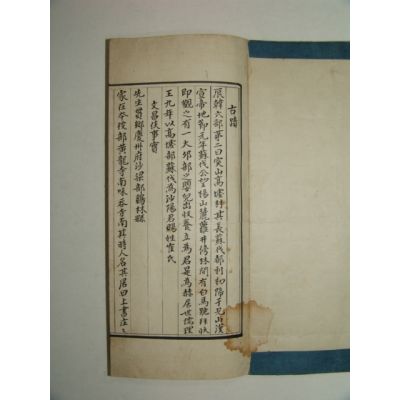 古蹟
辰韓六部第二曰突山高墟村其長蘇伐都利初降于兄山漢
宣帝地節元年蘇伐公望楊山麓蘿井傍林間有白馬跪拜狀
即觀之有一大卵部之嬰兒出收養立為君是為赫居世儒理
王九年以高墟部蘇伐為沙梁君賜姓崔氏
文昌侯事實
先生蜀鄉慶州府沙梁部鶴林縣
家在本披部黃龍寺南味吞寺南其時人名其居曰上書庄